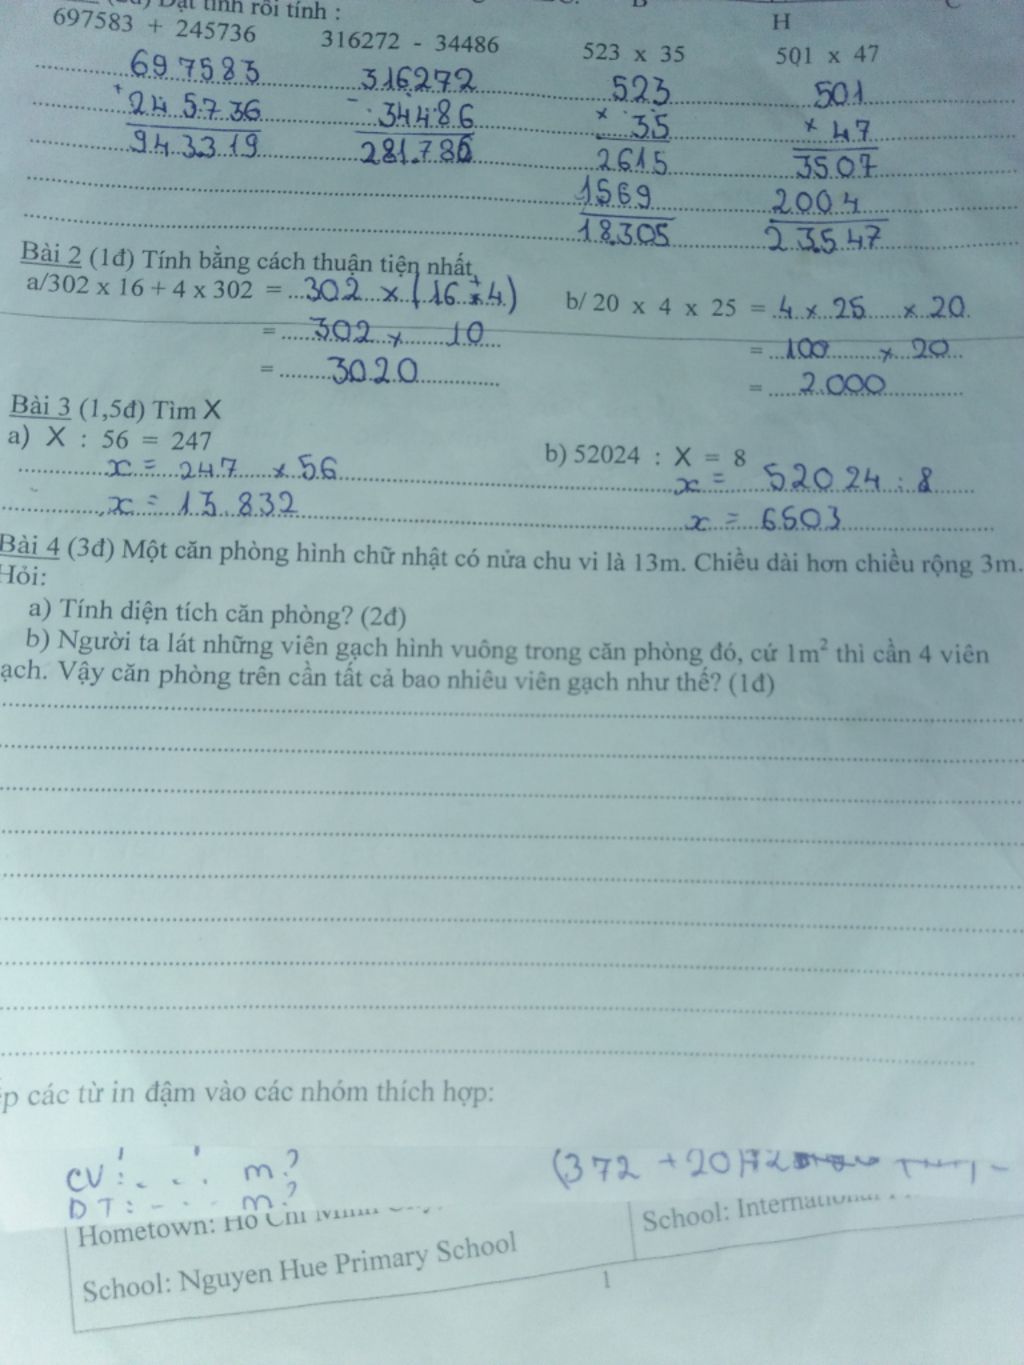 Đặt tính rồi tính :
697583 + 245736 316272 - 34486 523 x 35 501 x 47
H
697583 316272 523 501
+ 245736 - 34486 x 35 x 47
943319 281.786 2615 3507
1569 2004
18305 23547
Bài 2 (1đ) Tính bằng cách thuận tiện nhất.
a/302 x 16 + 4 x 302 = 302 x (16 + 4) b/ 20 x 4 x 25 = 4 x 25 x 20
= 302 x 10 = 100 x 20
= 3020 = 2.000
Bài 3 (1,5đ) Tìm X
a) X : 56 = 247 b) 52024 : X = 8
x = 247 x 56 x = 52024 : 8
x = 13.832 x = 6503
Bài 4 (3đ) Một căn phòng hình chữ nhật có nửa chu vi là 13m. Chiều dài hơn chiều rộng 3m.
Hỏi:
a) Tính diện tích căn phòng? (2đ)
b) Người ta lát những viên gạch hình vuông trong căn phòng đó, cứ 1m² thì cần 4 viên
ạch. Vậy căn phòng trên cần tất cả bao nhiêu viên gạch như thế? (1đ)
ếp các từ in đậm vào các nhóm thích hợp:
CV : . . . m? (372 + 20)
DT : - - - m?
Hometown: Ho Chi Minh City School: International
School: Nguyen Hue Primary School
1